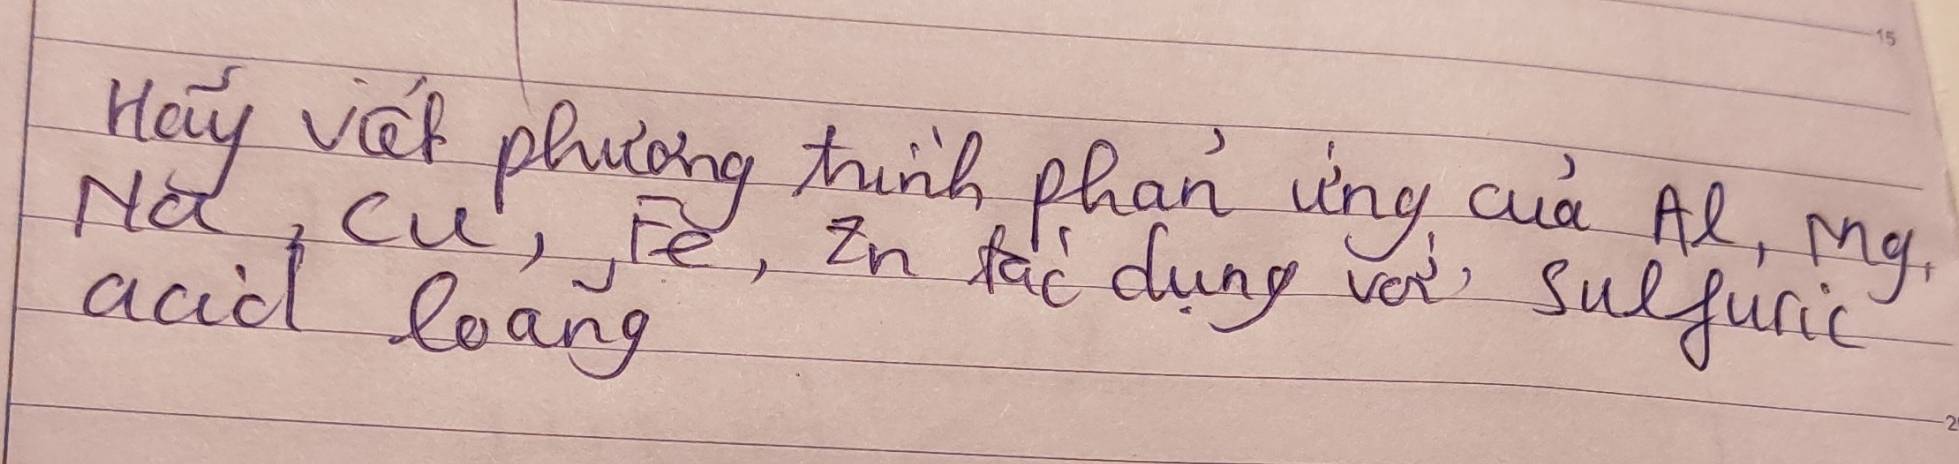 15
Hãy viết phương trình phản ứng của Al, Mg,
Na, Cu, Fe, Zn tác dụng với sulfuric
acid loãng